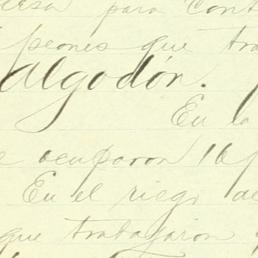 para cont
peones que tra
algodón.
En la
ocuparon 16 p
En el riego de
que trabajaron